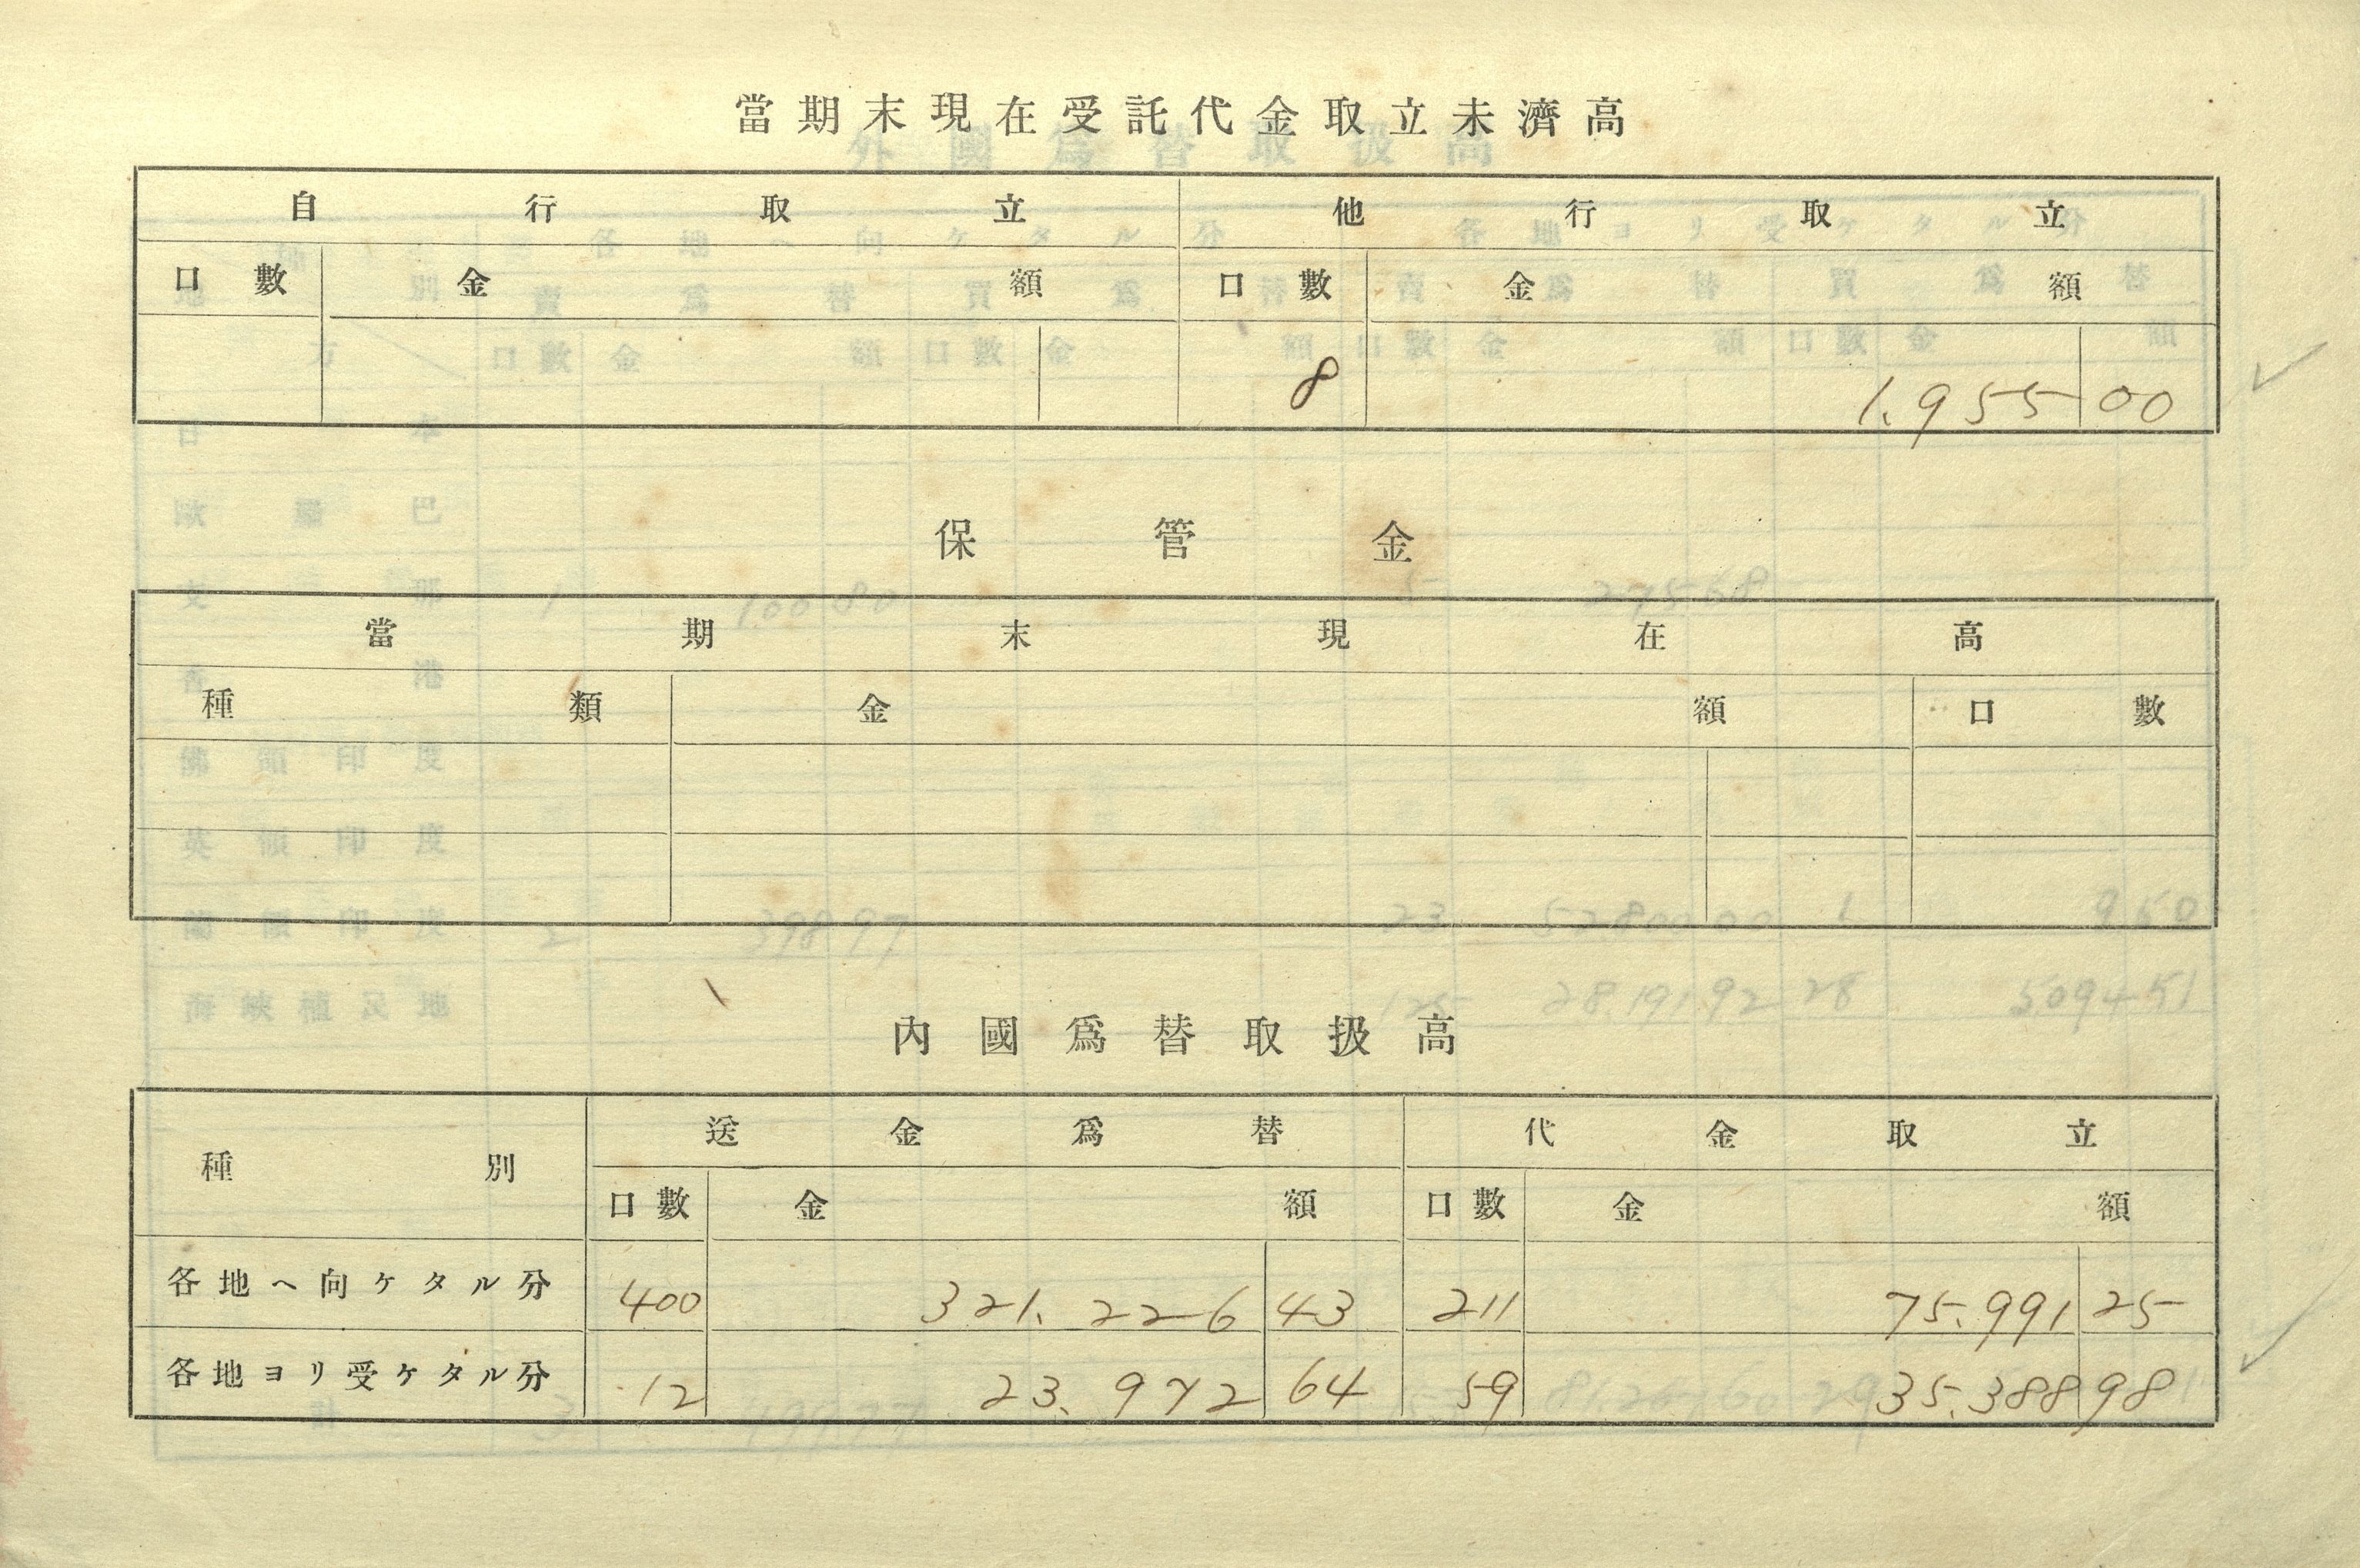 當期末現在受託代金取立未濟高
自行取立 他行取立
口數 金額 口數 金額
8 1.955 00
保管金
當期末現在高
種類 金額 口數
內國爲替取扱高
種別 送金爲替 代金取立
口數 金額 口數 金額
各地ヘ向ケタル分 400 321.226 43 211 75.991 25
各地ヨリ受ケタル分 12 23.972 64 59 35.388 98